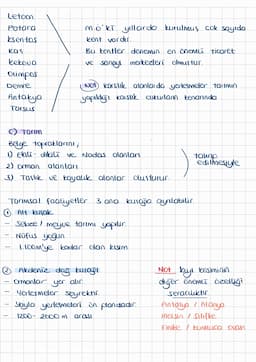 Letoon
Patara
Ksantos
Kaş
Kekova
Olimpos
Demre
Antakya
Tarsus
m.ö.'ki yıllarda kurulmuş çok sayıda
kent vardır.
Bu kentler dönemin en önemli ticaret
ve sanayi merkezleri olmuştur.
Not karstik alanlarda yerleşmeler tarımın
yapıldığı karstik çukurların kenarında
c) Tarım
Bölge topraklarını;
1) Ekili-dikili ve Nadas alanları
2) orman alanları
3) Taşlık ve kayalık alanlar oluşturur.
Tarımsal faaliyetler 3 ana kuşağa ayrılabilir.
① Alt kuşak
- Sebze / meyve tarımı yapılır
- Nüfus yoğun
- kadar olan kısım
② Akdeniz dağ kuşağı
- Ormanlar yer alır.
- Yerleşmeler seyrektir.
- Yayla yerleşmeleri ön plandadır.
- 1200 - 2000 m arası
Not kıyı kesiminin
diğer önemli özelliği
seracılıktır.
Antalya / Alanya
Mersin / Silifke
Finike / Kumluca